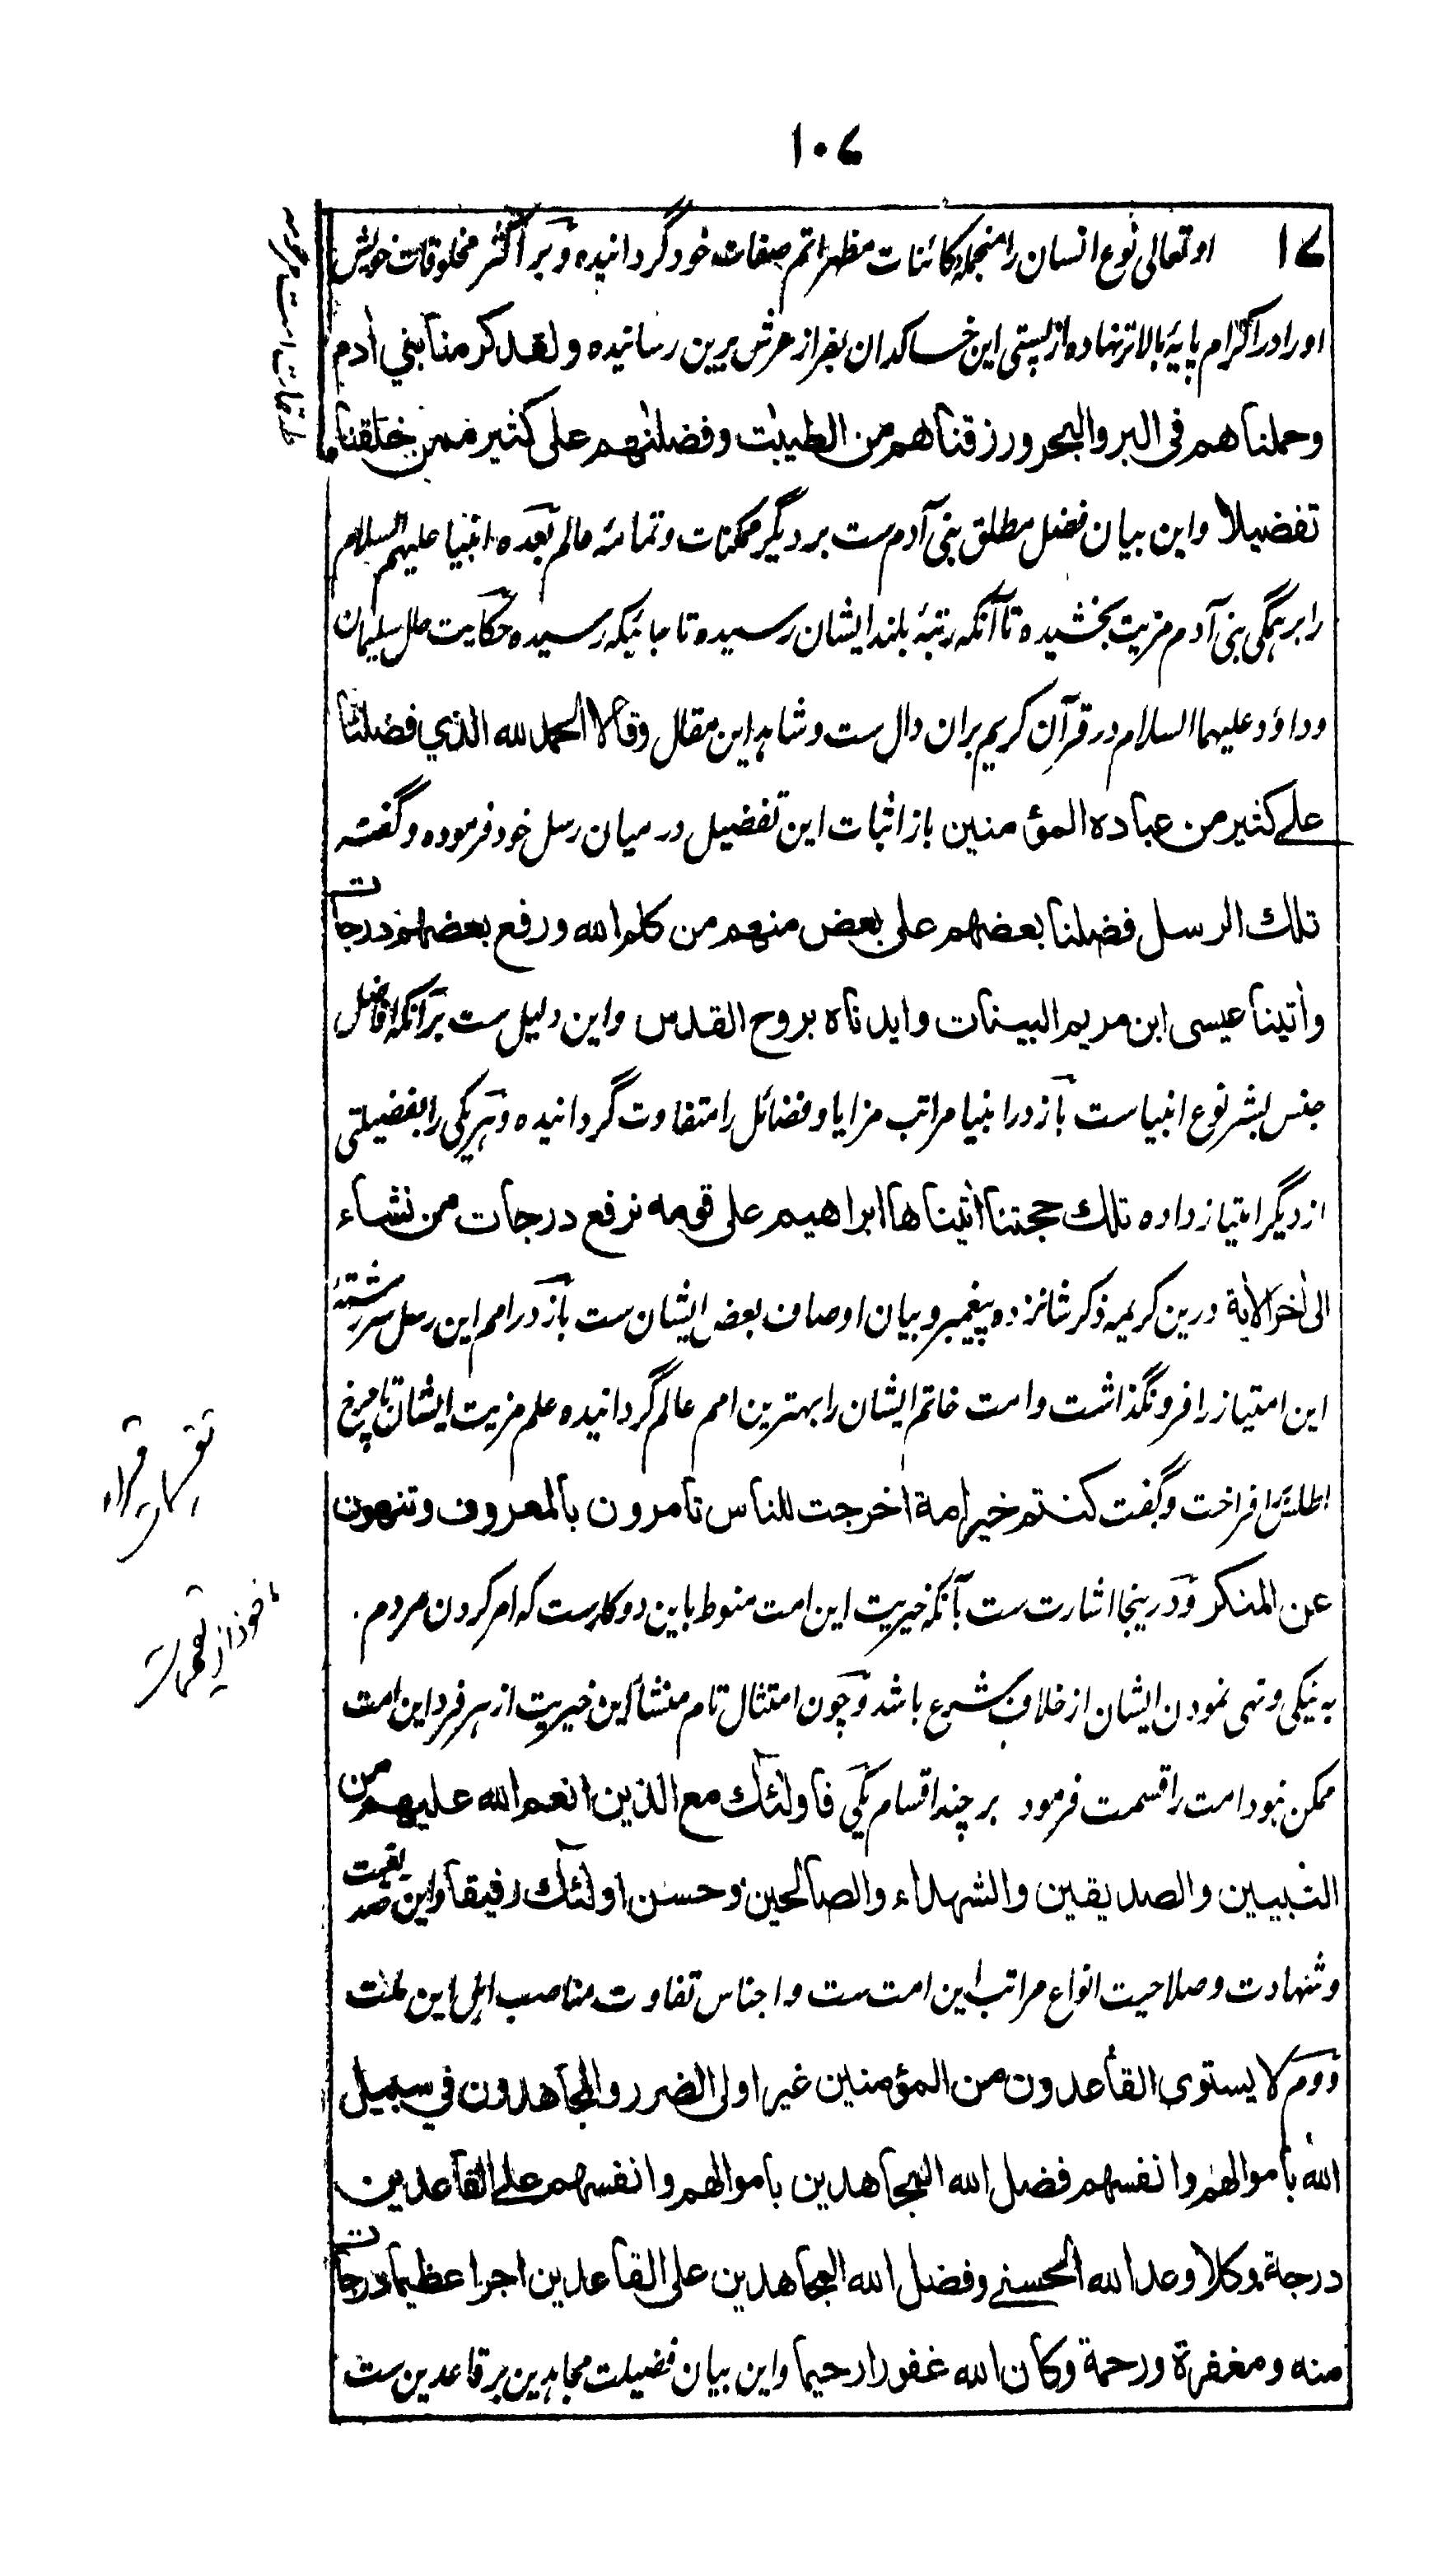 ۱۰۷
۱۷ او تعالی نوع انسان را منجمله کائنات مظهر اتم صفات خود گردانیده و بر اکثر مخلوقات خویش
او را در اکرام پایهٔ بالاتر نهاده از پستی این خاکدان بفراز عرش برین رسانیده ولقد کرمنا بني أدم
وحملناهم فی البر والبحر ورزقناهم من الطیبٰت وفضلنٰهم علی کثیر ممن خلقنا
تفضیلا واین بیان فضل مطلق بنی آدم ست بر دیگر ممکنات وتمامهٔ عالم بعده انبیا علیهم السلام
را بر همگی بنی آدم مزیت بخشیده تا آنکه رتبهٔ بلند ایشان رسیده تا جائیکه رسیده حکایت حال سلیمان
و داؤد علیهما السلام در قرآن کریم بران دال ست وشاهد این مقال وقالا الحمد لله الذي فضلنا
علے کثیر من عباده المؤمنین باز اثبات این تفضیل در میان رسل خود فرموده وگفته
تلك الرسل فضلنا بعضهم علی بعض منهم من کلم الله ورفع بعضهم درجات
وأتینا عیسی ابن مریم البینات وایدناه بروح القدس واین دلیل ست برآنکه افاضل
جنس بشر نوع انبیاست باز در انبیا مراتب مزایا وفضائل را متفاوت گردانیده وهر یکی را بفضیلتی
از دیگر امتیاز داده تلك حجتنا أتیناها ابراهیم علی قومه نرفع درجات من نشاء
الی أخر الاٰیة درین کریمه ذکر شانزده پیغمبر وبیان اوصاف بعض ایشان ست باز در امم این رسل سررشتهٔ
این امتیاز را فرونگذاشت وامت خاتم ایشان را بهترین امم عالم گردانیده علم مزیت ایشان تا چرخ
اطلس افراخت وگفت کنتم خیر امة اخرجت للناس تامرون بالمعروف وتنهون
عن المنکر ودرینجا اشارت ست بآنکه خیریت این امت منوط باین دو کارست که امر کردن مردم
به نیکی ونهی نمودن ایشان از خلاف شرع باشد وچون امتثال تام منشأ این خیریت از هر فرد این امت
ممکن نبود امت را قسمت فرمود بر چند اقسام یکی فاولئك مع الذین انعم الله علیهم من
النبیین والصدیقین والشهداء والصالحین وحسن اولئك رفیقا واین صدیقیت
وشهادت وصلاحیت انواع مراتب این امت ست واجناس تفاوت مناصب اهل این ملت
دوم لا یستوی القاعدون من المؤمنین غیر اولی الضرر والمجاهدون في سبیل
الله باموالهم وانفسهم فضل الله المجاهدین باموالهم وانفسهم علے القاعدین
درجة وکلا وعد الله الحسنے وفضل الله المجاهدین علی القاعدین اجرا عظیما درجات
منه ومغفرة ورحمة وکان الله غفورا رحیما واین بیان فضیلت مجاهدین بر قاعدین ست